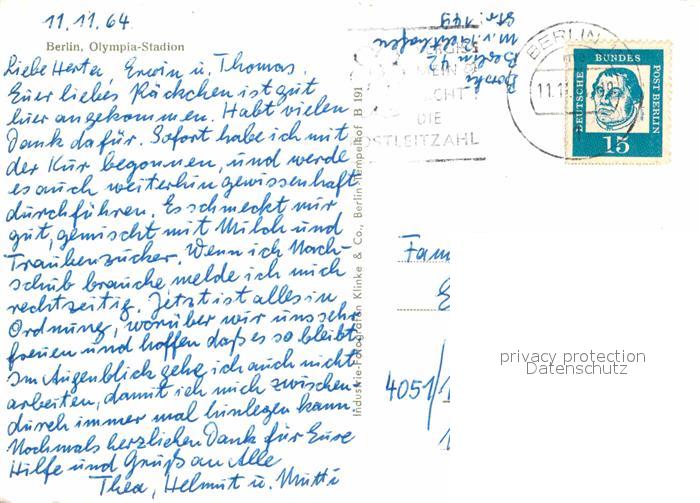 11.11.64
Berlin, Olympia-Stadion
Liebe Herta, Erwin u. Thomas.
Euer liebes Päckchen ist gut
hier angekommen. Habt vielen
Dank dafür. Sofort habe ich mit
der Kur begonnen, und werde
es auch weiterhin gewissenhaft
durchführen. Es schmeckt mir
gut, gemischt mit Milch und
Traubenzucker. Wenn ich Nach-
schub brauche melde ich mich
rechtzeitig. Jetzt ist alles in
Ordnung, worüber wir uns sehr
freuen und hoffen daß es so bleibt.
Im Augenblick gehe ich auch nicht
arbeiten, damit ich mich zwischen
durch immer mal hinlegen kann.
Nochmals herzlichen Dank für Eure
Hilfe und Gruß an Alle
Thea, Helmut u. Mutti
Industrie-Fotografen Klinke & Co., Berlin-Tempelhof B 191
Berlin 42
Str. 149
DIE
POSTLEITZAHL
BERLIN
DEUTSCHE BUNDES POST BERLIN
15
Fam
4051/1
privacy protection
Datenschutz